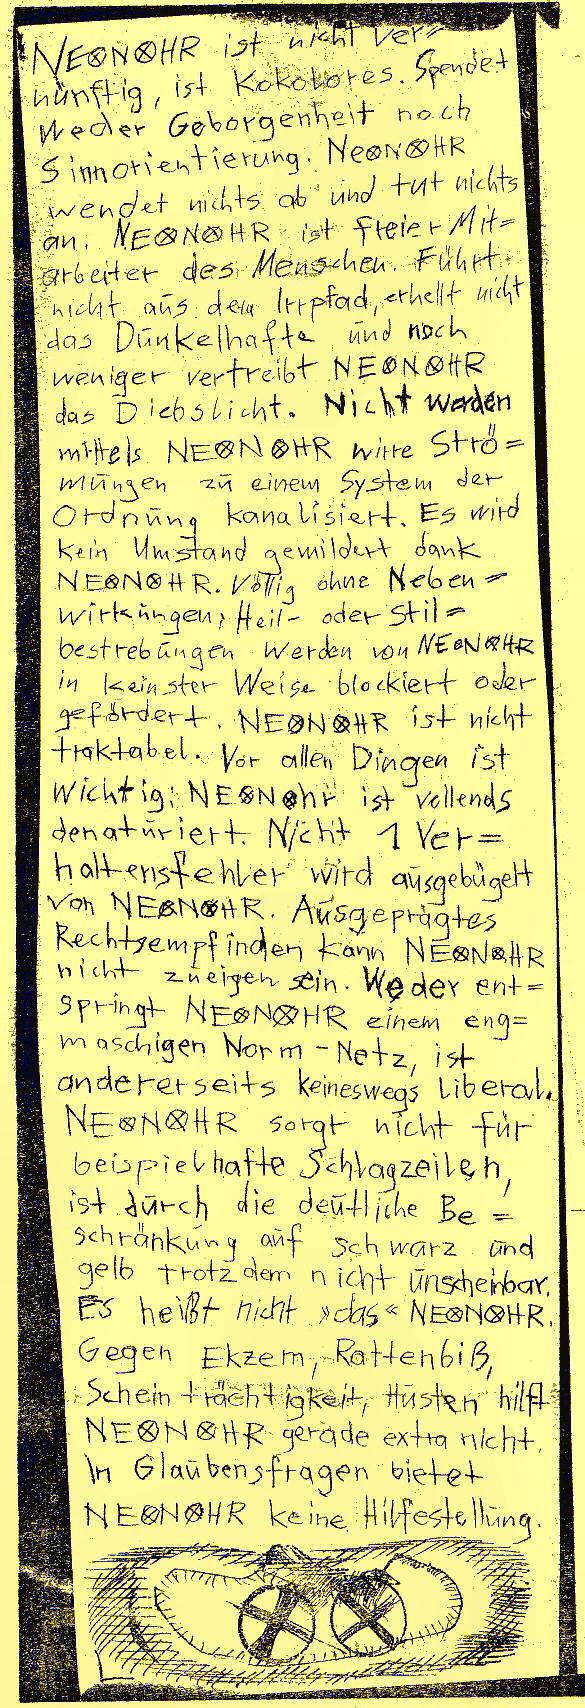 NEONOHR ist nicht ver=
nünftig, ist Kokolores. Spendet
weder Geborgenheit noch
Sinnorientierung. NeONOHR
wendet nichts ab und tut nichts
an. NEONOHR ist freier Mit=
arbeiter des Menschen. Führt
nicht aus dem Irrpfad, erhellt nicht
das Dunkelhafte und noch
weniger vertreibt NEONOHR
das Diebslicht. Nicht werden
mittels NEONOHR wirre Strö=
mungen zu einem System der
Ordnung kanalisiert. Es wird
kein Umstand gemildert dank
NEONOHR. Völlig ohne Neben=
wirkungen, Heil- oder Stil=
bestrebungen werden von NEONOHR
in keinster Weise blockiert oder
gefördert. NEONOHR ist nicht
traktabel. Vor allen Dingen ist
wichtig: NEONOhr ist vollends
denaturiert. Nicht 1 Ver=
haltensfehler wird ausgebügelt
von NEONOHR. Ausgeprägtes
Rechtsempfinden kann NEONOHR
nicht zueigen sein. Weder ent=
springt NEONOHR einem eng=
maschigen Norm-Netz, ist
andererseits keineswegs liberal.
NEONOHR sorgt nicht für
beispielhafte Schlagzeilen,
ist durch die deutliche Be=
schränkung auf schwarz und
gelb trotzdem nicht unscheinbar.
Es heißt nicht »das« NEONOHR.
Gegen Ekzem, Rattenbiß,
Scheinträchtigkeit, Husten hilft
NEONOHR gerade extra nicht.
In Glaubensfragen bietet
NEONOHR keine Hilfestellung.